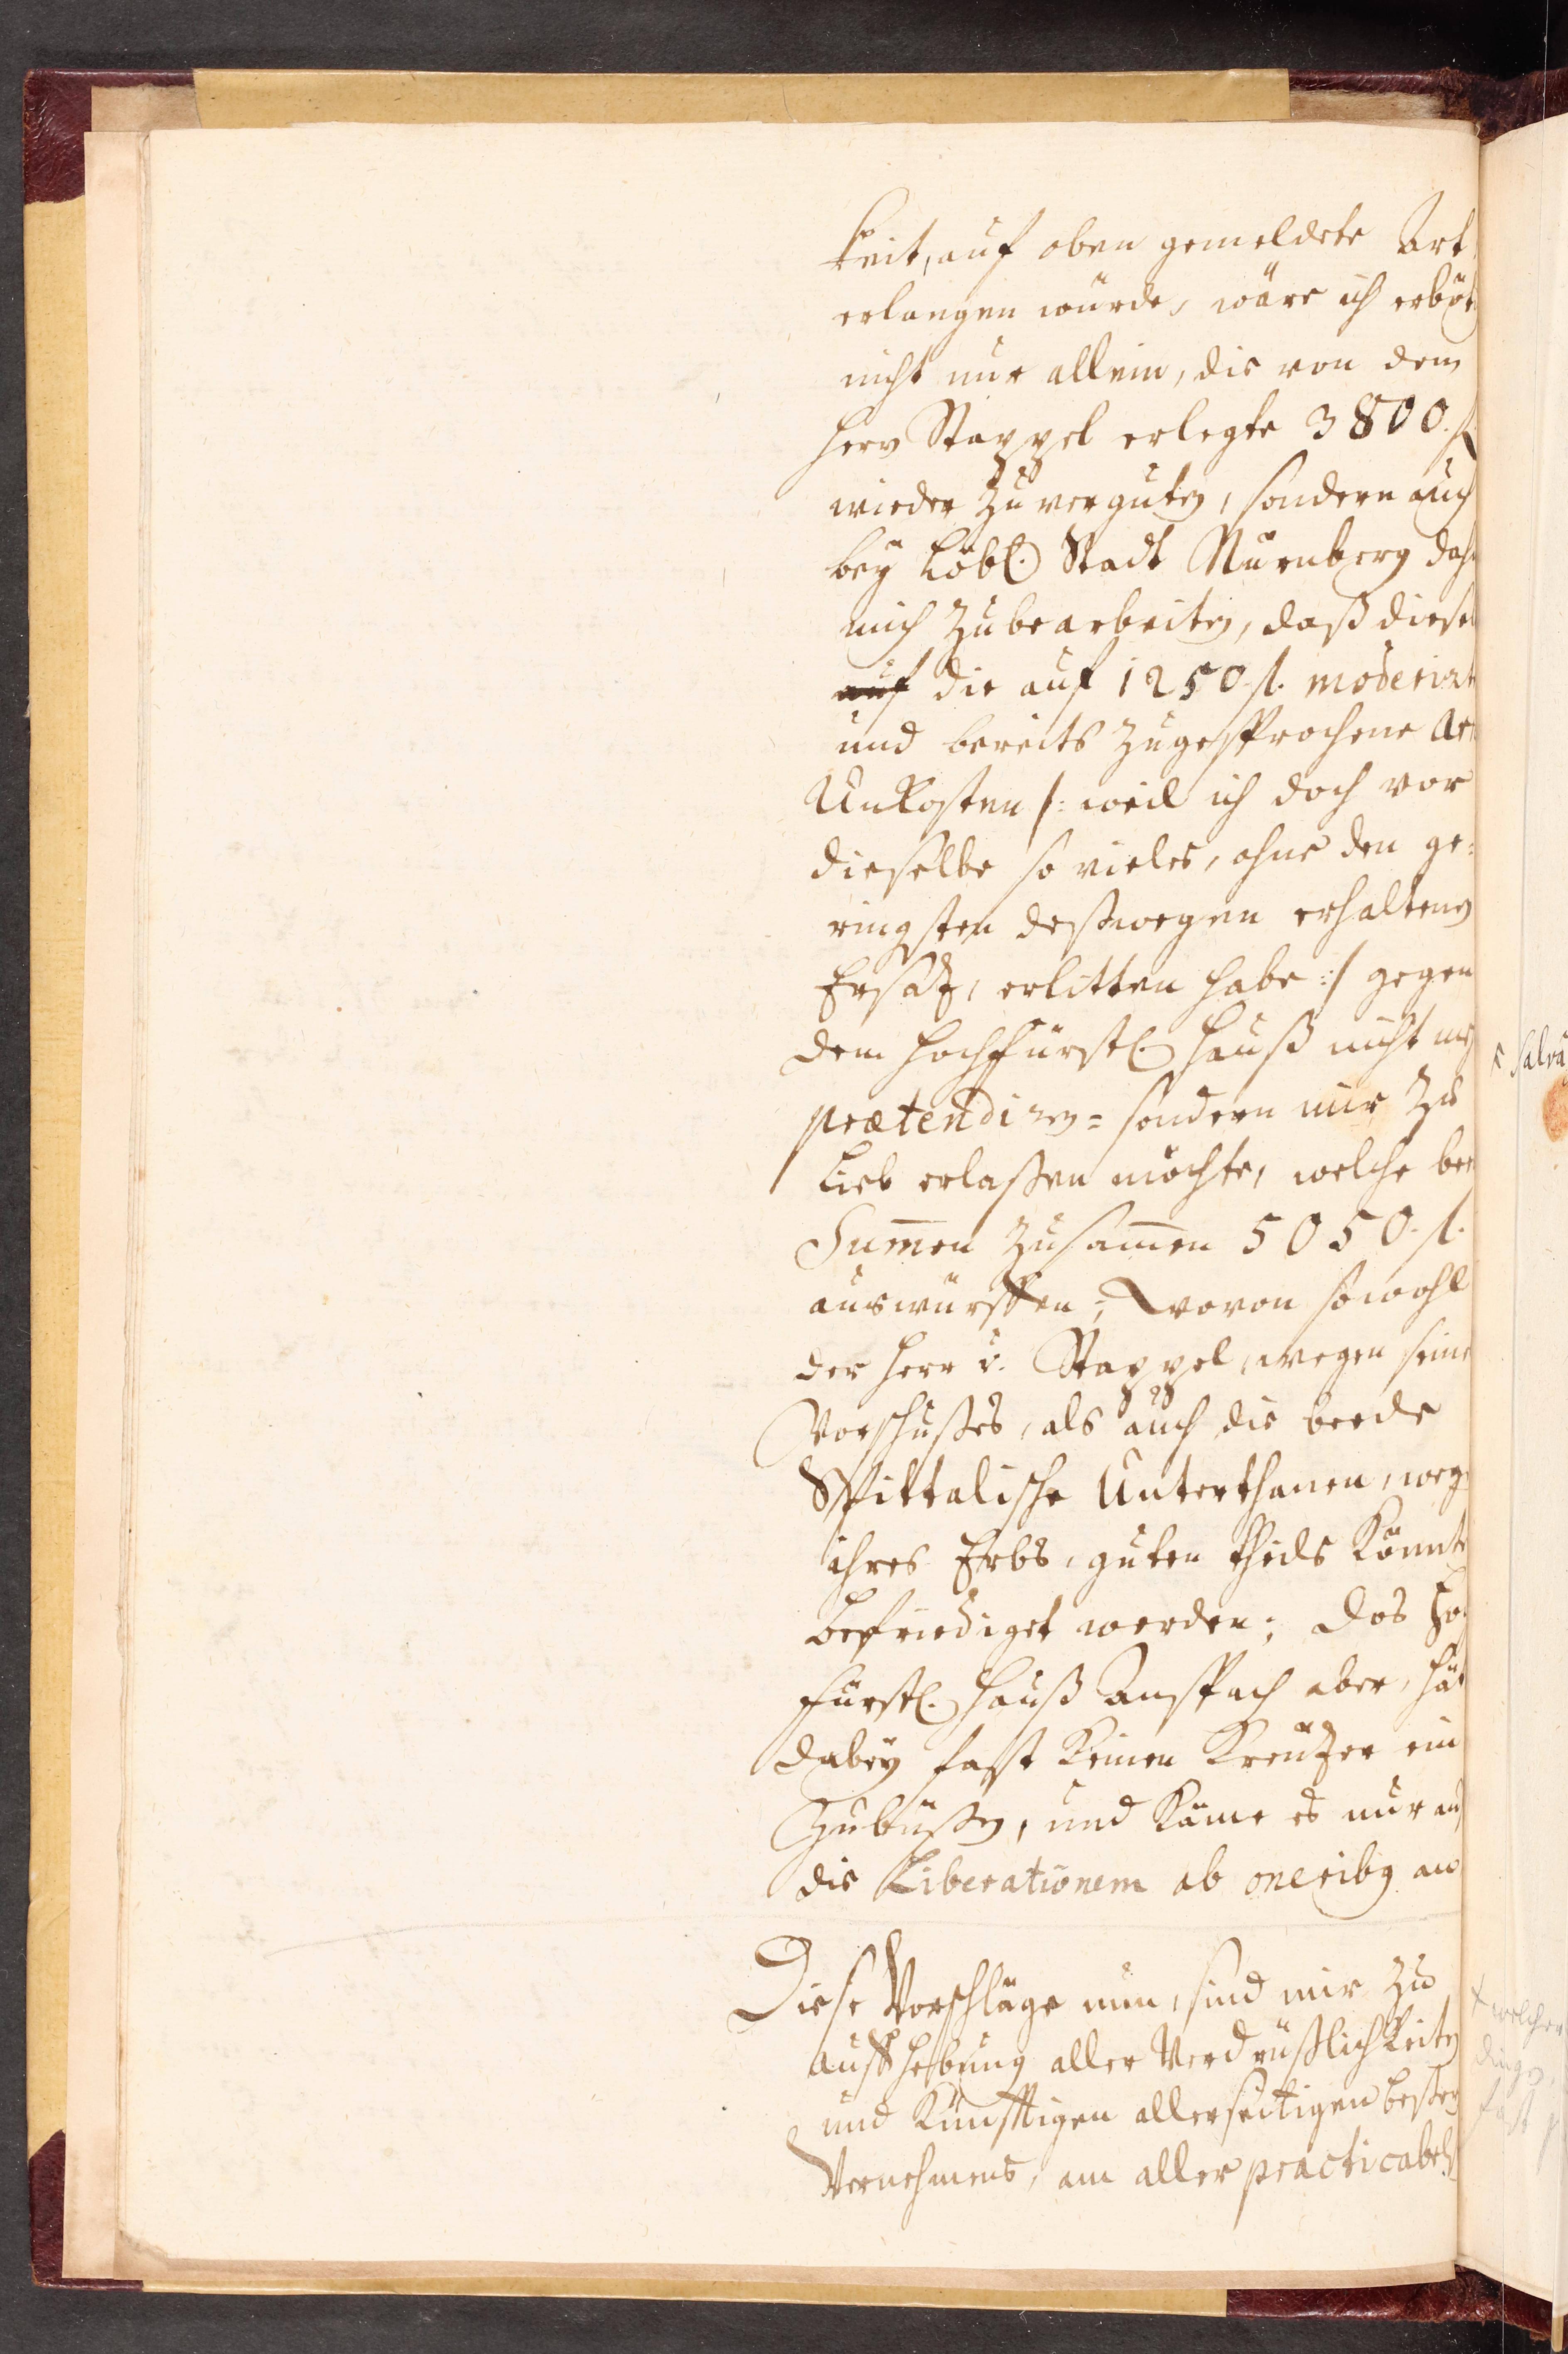 keit, auf oben gemeldete Art,
erlangen würde, wäre ich erböt
nicht nur allein, die von dem
Herrn Stappel erlegte 3800. fl.
wieder zu verguten, sondern auch
bey Löbl. Stadt Nürnberg dah
mich zubearbeiten, daß diese
auf die auf 1250. fl. moderirt
und bereits zugesprochene
Unkosten /: weil ich doch vor
dieselbe so vieles, ohne den ge=
ringsten deßwegen erhaltenen
Ersatz, erlitten habe :/ gegen
dem Hochfürstl. Hauß nicht
prætendiren= sondern mir zu
Lieb erlaßen möchte, welche
Sum̄en zusam̄en 5050. fl.
auswürffen; wovon sowohl
der Herr v. Stappel, wegen seine
Vorschußes, als auch die beede
Spittalische Unterthanen, weg
ihres Erbs, guten theils könnt
befriediget werden; Das Ho
fürstl. Hauß Anspach aber, hät
dabey fast keinen Kreutzer ein
zubüßen, und käme es nur auf
die Liberationem ab oneribg an
Diese Vorschläge nun, sind mir zu
auffhebung aller Verdrüßlichkeiten
und künfftigen allerseitigen besten
Vernehmens, am aller practicabels
salva
welcher
dings
fast